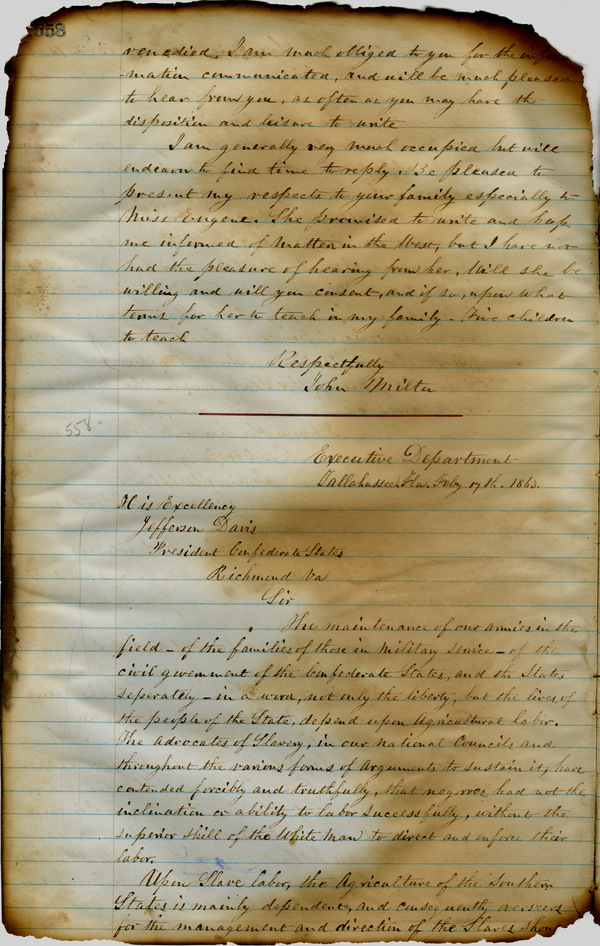 558
remedied. I am much obliged to you for the infor
-mation communicated, and will be much pleased
to hear from you, as often as you may have the
disposition and leisure to write
I am generally very much occupied but will
endeavor to find time to reply. Be pleased to
present my respects to your family especially to
Miss Eugene. She promised to write and keep
me informed of matter in the West, but I have not
had the pleasure of hearing from her. Will she be
willing and will you consent, and if so, upon what
terms for her to teach in my family - Five children
to teach
Respectfully
John Milton
558.
Executive Department
Tallahassee, Fla. Feby 17th. 1863.
His Excellency
Jefferson Davis
President Confederate States
Richmond Va
Sir
The maintenance of our armies in the
field - of the families of those in military service - of the
civil government of the Confederate States, and the States
seperately - in a word, not only the liberty, but the lives of
the people of the State, depend upon Agricultural labor.
The advocates of Slavery, in our National Councils and
throughout the various forms of arguments to sustain it, have
contended forcibly and truthfully, that negroes had not the
inclination or ability to labor successfully, without the
superior skill of the White man to direct and enforce their
labor.
Upon Slave labor, the Agriculture of the Southern
States is mainly dependent, and consequently overseers
for the management and direction of the Slaves shou